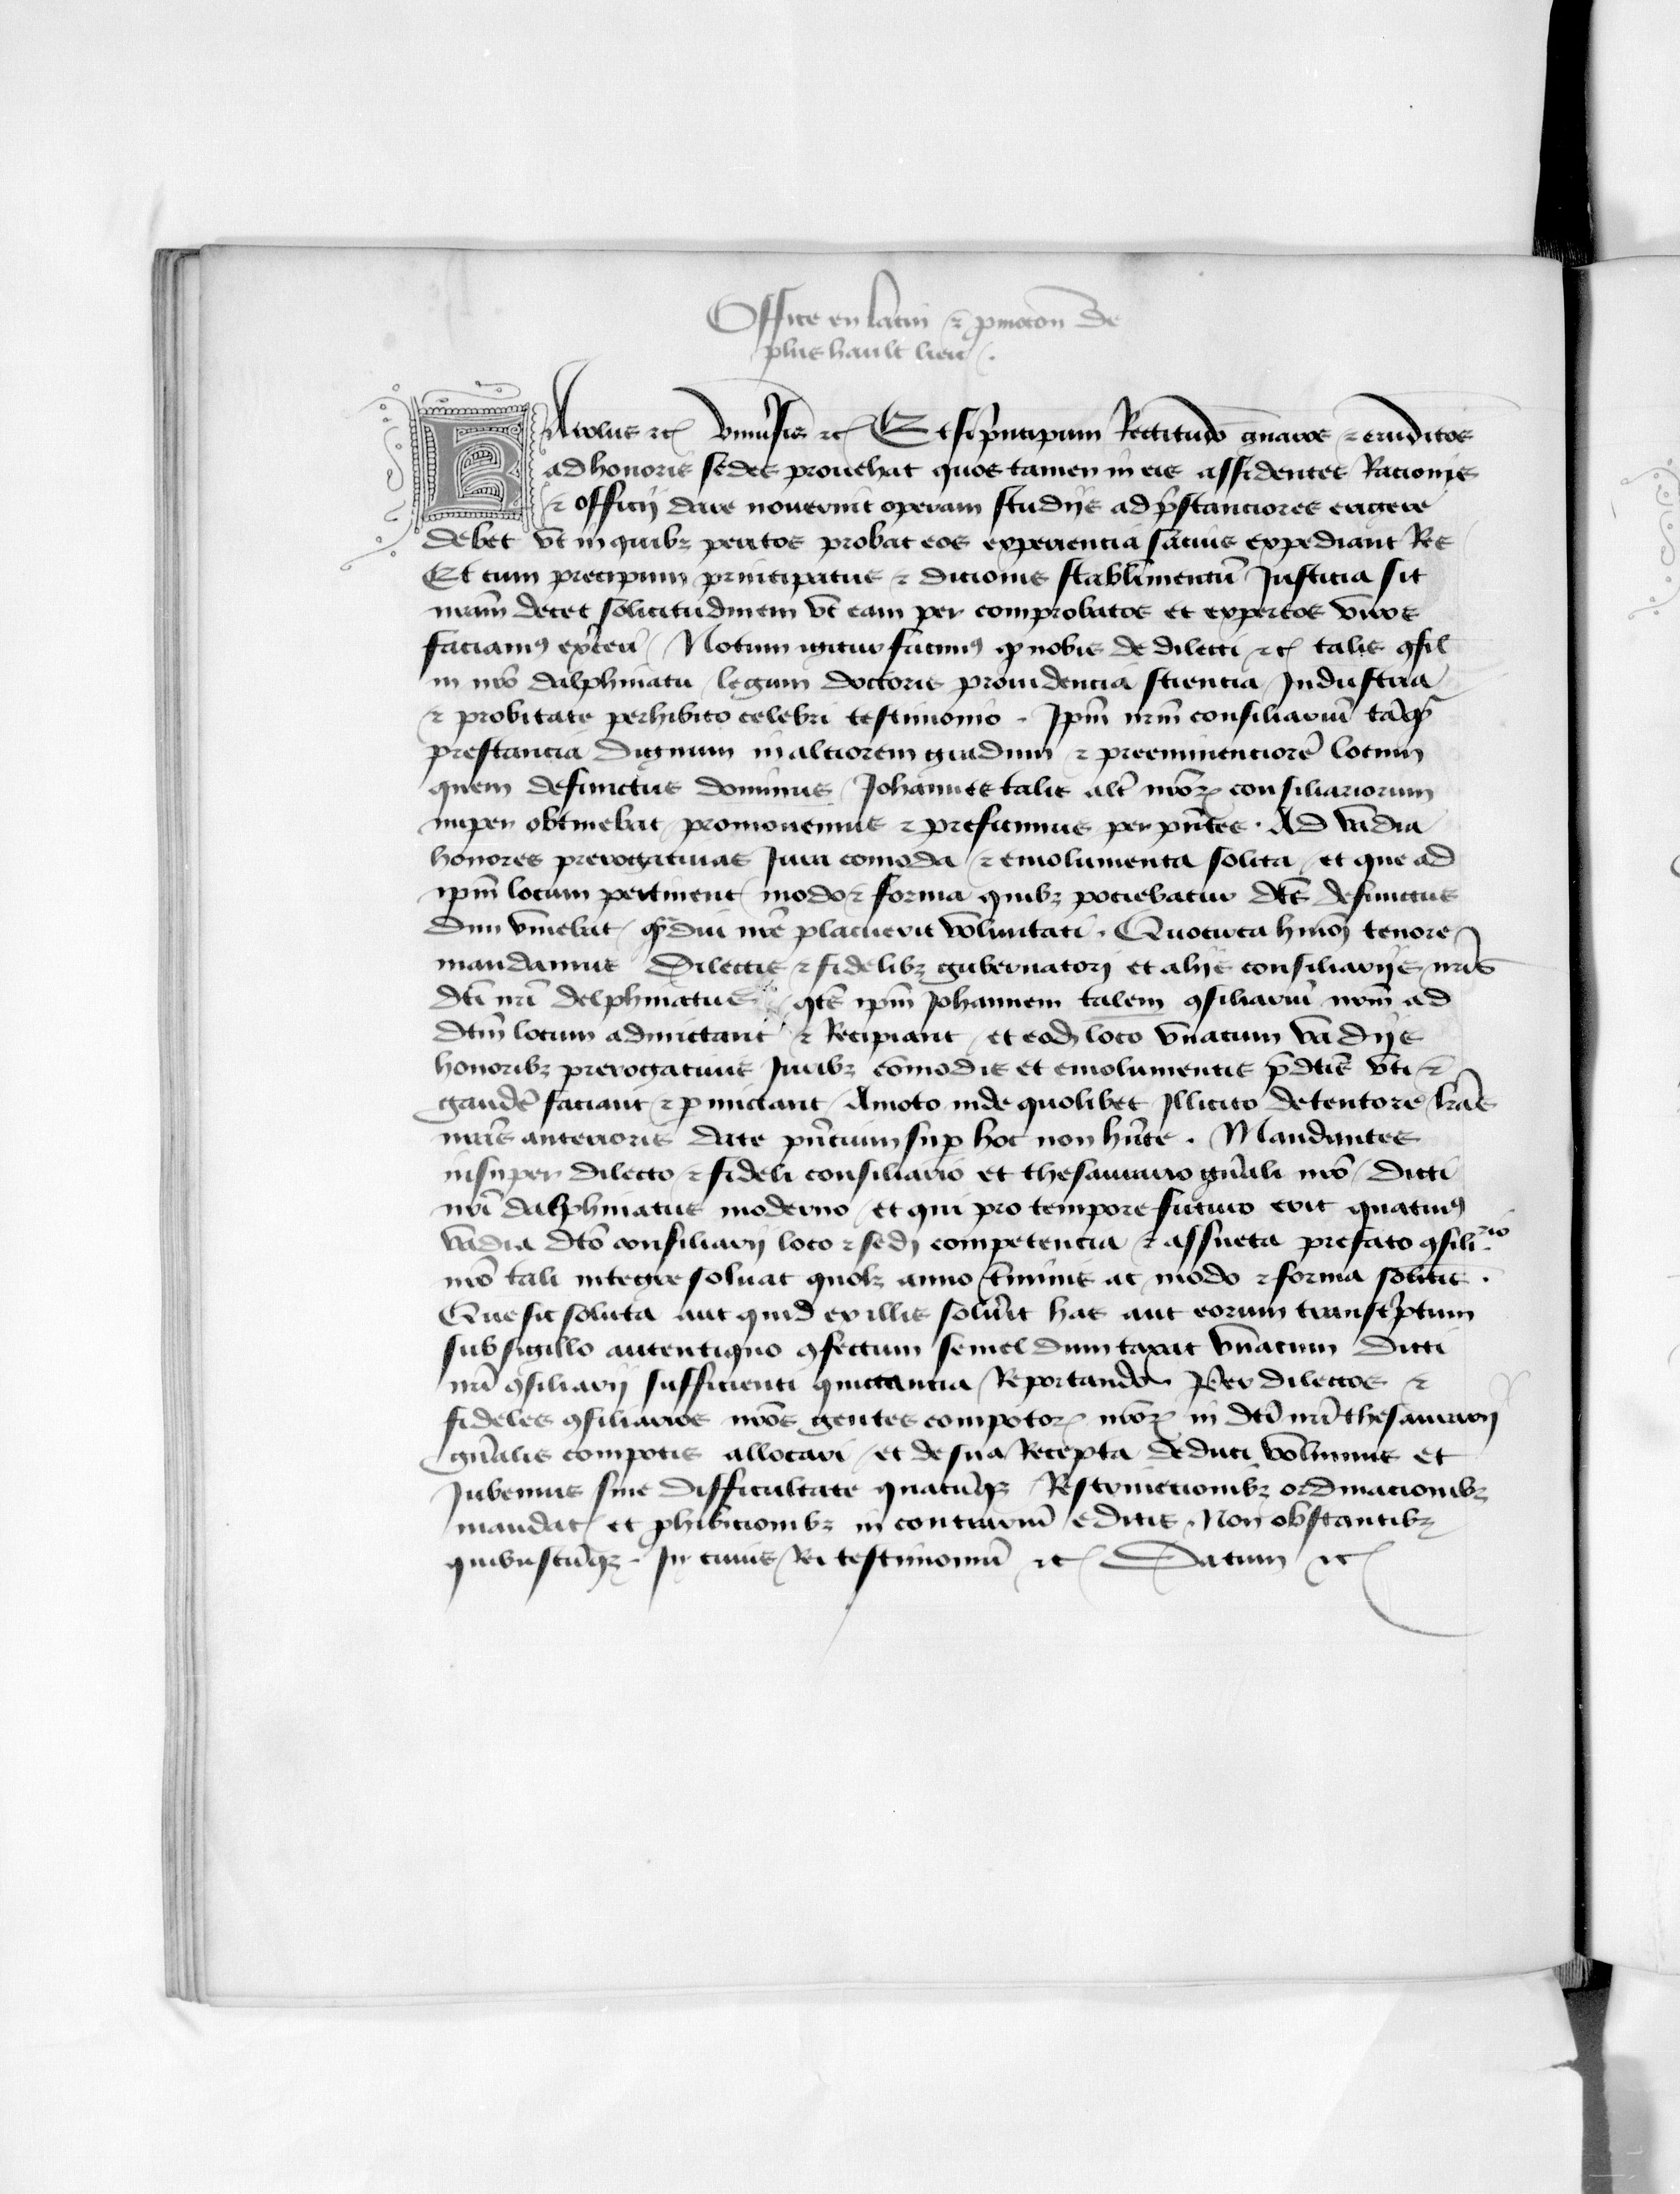 Office en latin ⁊ pmocōn de
plus hault lieu.
KArolus ⁊c̃ Vniu̾sis ⁊c̃ Etsi p̾ncipum Rectitudo gnaros ⁊ eruditos
ad honoris sedes prouehat quos tamen in eis assidentes Racionis
⁊ officij dare nouerint operam studijs ad p̾stanciores erigere
debet vt in quibꝫ peritos probat eos experiencia sacius expediant Res
Et cum precipuum principatus ⁊ dicionis stabilimentū Justicia sit
nrām decet solicitudinem vt eam per comprobatos et expertos viros
faciamꝰ exērcri Notum igitur facimꝰ ꝙ nobis de dilecti ⁊c̃ talis ꝯsil̃
in nrō dalphinatu legum doctoris prouidencia sciencia Industria
⁊ probitate perhibito celebri testimonio. Ipm̄ nrm̄ consiliariū tāqꝫ
prestancia dignum in alciorem gradum ⁊ preeminenciorē locum
quem defunctus dominus Johannes talis alt̄ nrōꝝ consiliariorum
nuper obtinebat promouemus ⁊ preficimus per pn̄tes. Ad vadia
honores prerogatiuas Jura comoda ⁊ emolumenta solita et que ad
ipm̄ locum pertinent modo ⁊ forma quibꝫ pociebatur dc̄s defunctus
dum viuebat qᷓdiu nrē placuerit volūntati. Quocirca hmōj tenore
mandamus Dilectis ⁊ fidelibꝫ gubernatorj et alijs consiliarijs nrīs
dc̄i nrī delphinatus qt̄s ipm̄ Johannem talem ꝯsiliariū nrm̄ ad
dc̄m locum admictant ⁊ Recipiant et eodꝫ loco vnacum vadijs
honoribꝫ prerogatiuis Juribꝫ cōmodis et emolumentis p̄dc̄is vti ⁊
gaudē faciant ⁊ ꝑmictant Amoto inde quolibet Illicito detentore lrās
nrās anterioris date pn̄cium suꝑ hoc non hn̄te. Mandantes
insuper dilecto ⁊ fideli consiliario et thesaurario gn̄ali nrō dicti
nrī dalphinatus moderno et qui pro tempore futuro erit quatinꝰ
vadia dc̄o consiliarij loco ⁊ sedj competencia ⁊ assueta prefato ꝯsiliᵃʳⁱᵒ
nrō tali integre soluat quolꝫ anno t̄minis ac modo ⁊ forma solitis.
Que sic soluta aut quid ex illis solūit has aut eorum transc̾ptum
sub sigillo autentiquo ꝯfectum semel dumtaxat vnacum dicti
nrī ꝯsiliarij sufficienti quictancia Reportando. Per dilectos ⁊
fideles ꝯsiliarios nrōs gentes compotoꝝ nrōꝝ in dc̄i nrī thesaurarij
gn̄alis compotis allocari et de sua Recepta deduci volumus et
Jubemus sine difficultate quacūqꝫ Restrinctionibꝫ ordinacionibꝫ
mandat̃ et ꝓhibicionibꝫ in contrariū editis. Non obstantibꝫ
quibuscūqꝫ. In cuius Rei testimoniū ⁊c̃ Datum ⁊c̃